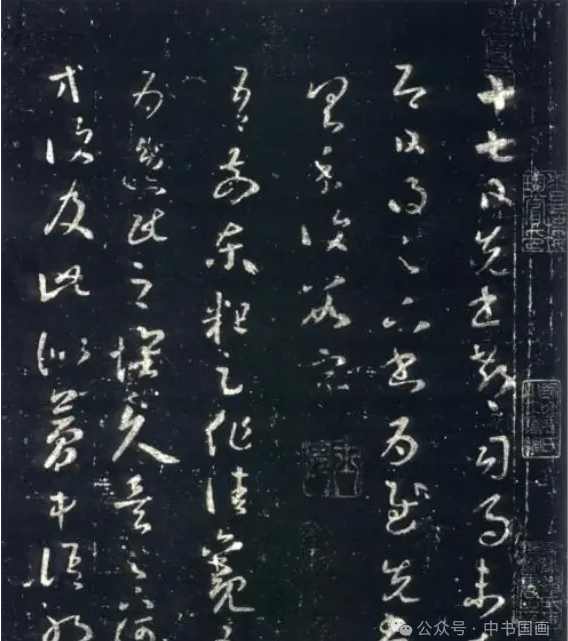 十七日先書郗司馬未
即日得足下書為慰先書
以具示復數字
吾前東粗足作佳觀吾
為逸民之懷久矣足下何
等復及此似夢中語耶
公众号·中书国画